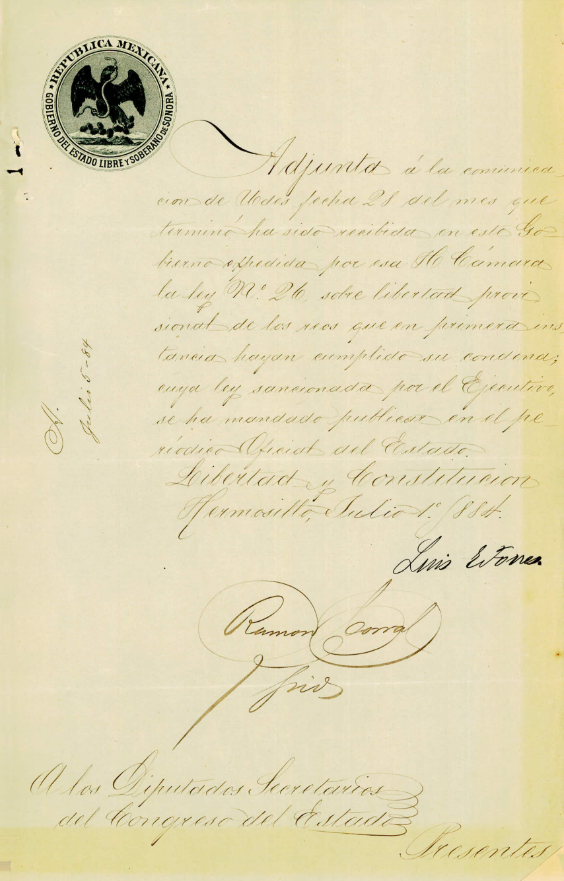 REPUBLICA MEXICANA
GOBIERNO DEL ESTADO LIBRE Y SOBERANO DE SONORA
1-
Adjunta á la comunica
cion de Udes fecha 28 del mes que
terminó ha sido recibida en este Go-
bierno expedida por esa H Cámara
la ley Nº 26, sobre libertad provi
sional de los reos que en primera ins
tancia hayan cumplido su condena;
cuya ley, sancionada por el Ejecutivo,
se ha mandado publicar en el pe-
riódico Oficial del Estado.
Libertad y Constitucion
Hermosillo, Julio 1º/884.
A.
Julio 5-84
Luis E Torres
Ramon Corral
A los Diputados Secretarios
del Congreso del Estado
Presentes